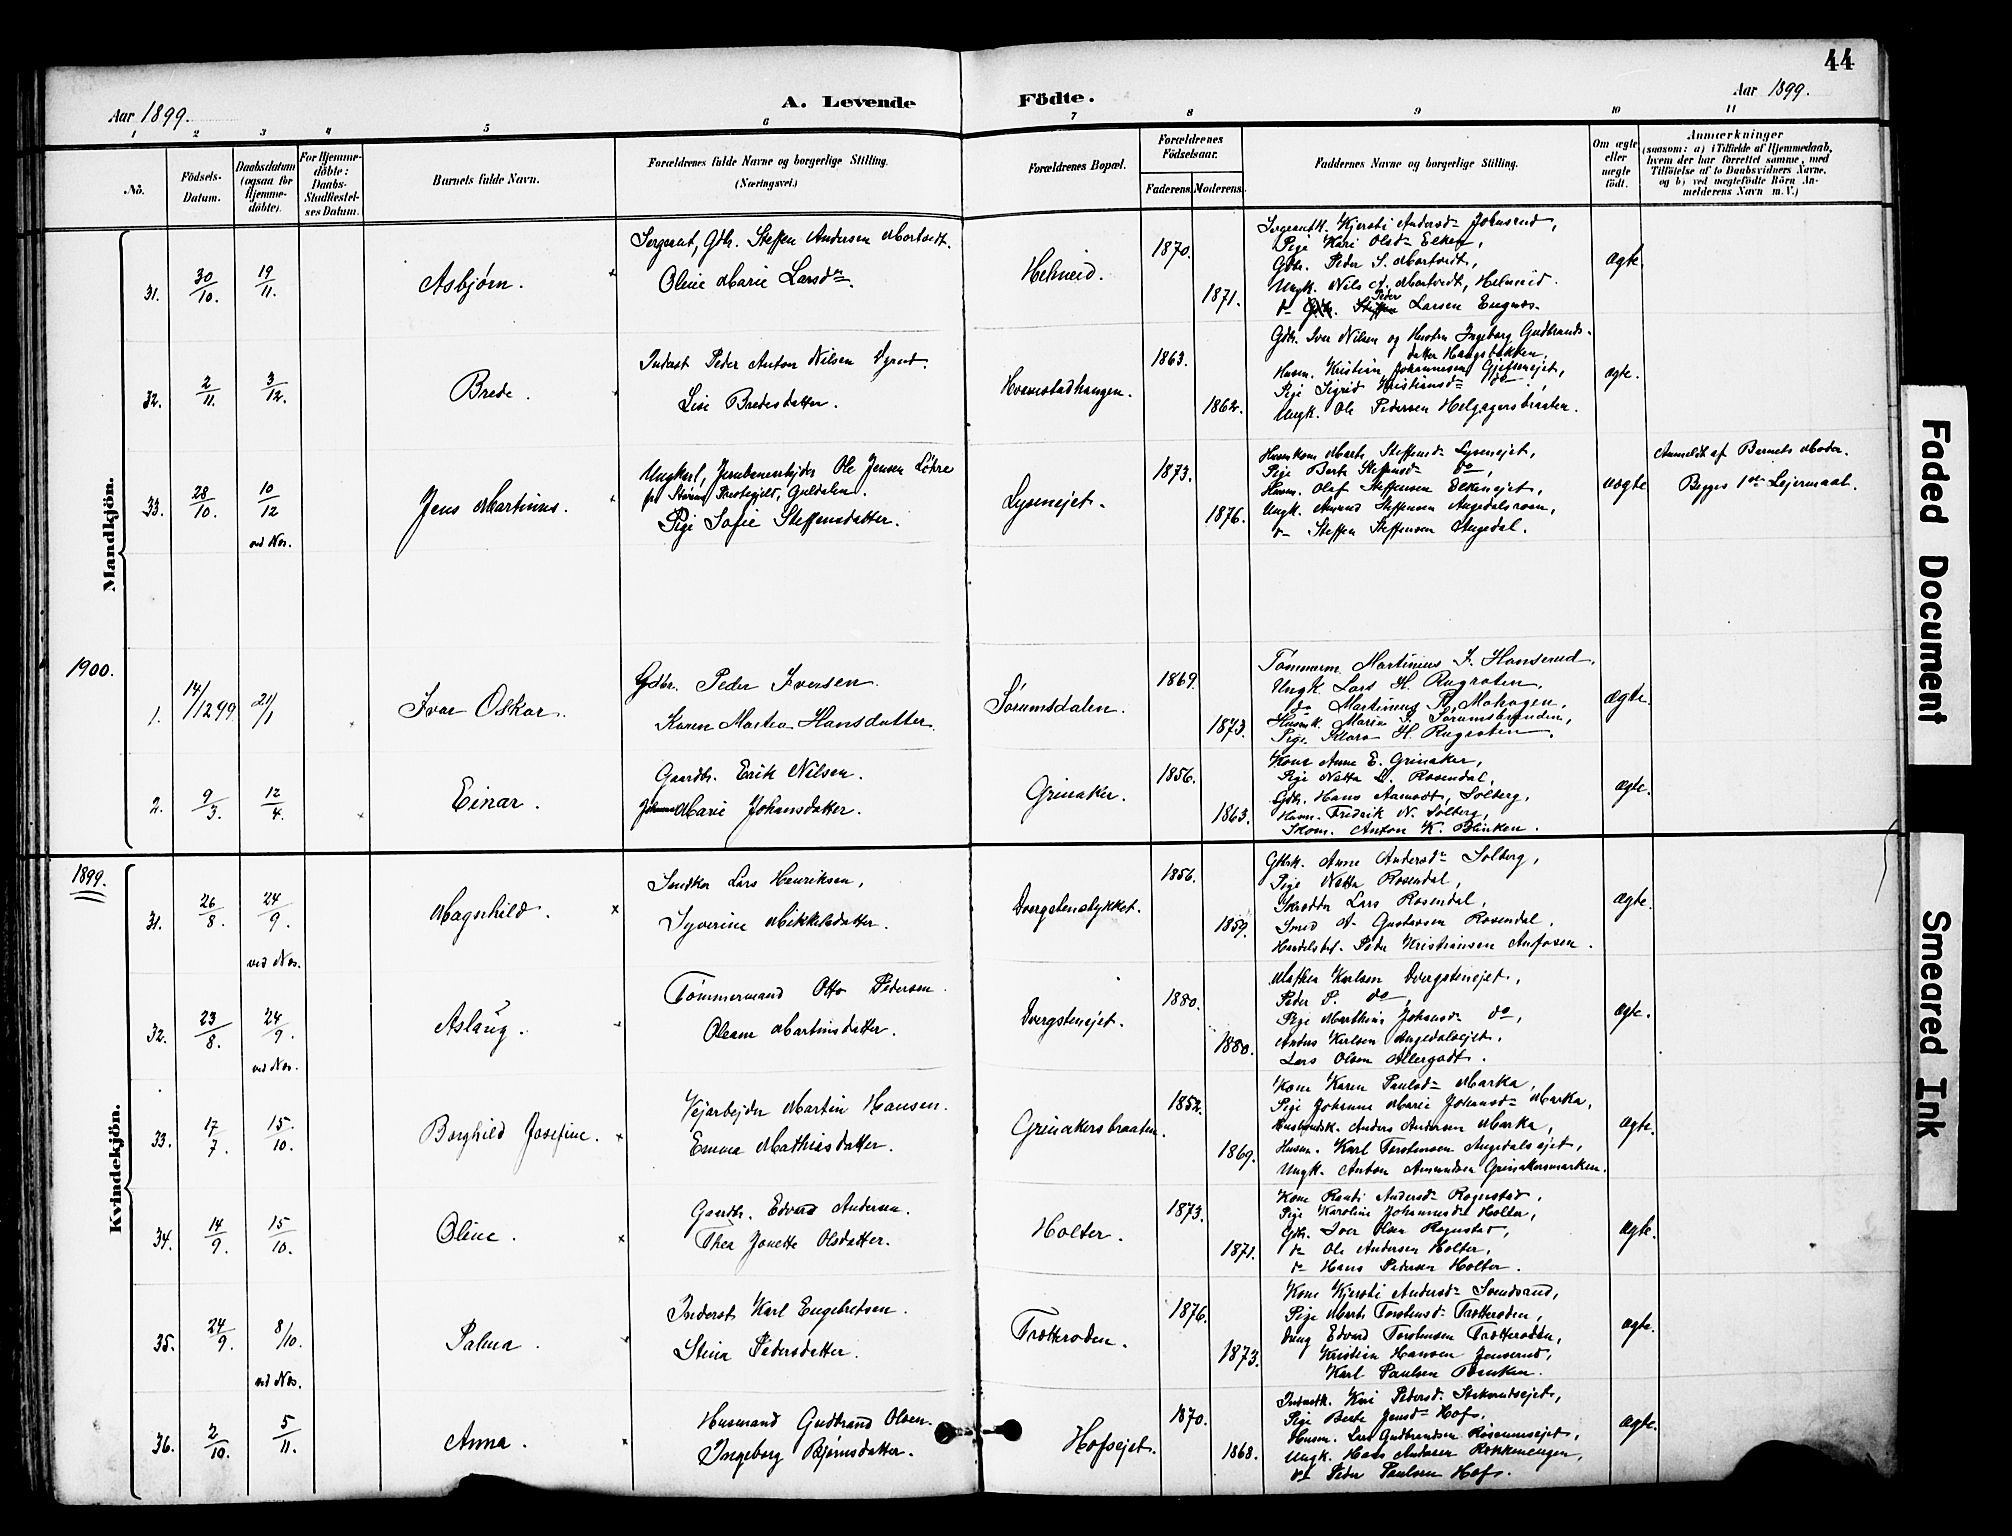 44
Aar 1899.
A. Levende Födte.
Aar 1899.
1 2 3 4 5 6 7 8 9 10 11
No.
Födsels-Datum.
Daabsdatum (ogsaa for Hjemme-döbte).
For Hjemme-döbte: Daabs-Stadfæstel-ses Datum.
Barnets fulde Navn.
Forældrenes fulde Navne og borgerlige Stilling. (Næringsvei.)
Forældrenes Bopæl.
Forældrenes Födselsaar.
Faderens. Moderens.
Faddernes Navne og borgerlige Stilling.
Om ægte eller uægte født.
Anmærkninger
(saasom: a) i Tilfælde af Hjemmedaab,
hvem der har forrettet samme, med
Tilföielse af to Daabsvidners Navne,
og b) ved uægtefödte Börn An-
melderens Navn m. V.)
Mandkjön.
31. 30/10. 19/11. Asbjørn.
Sergeant, Gdbr. Steffen Andersen Mortvedt.
Oline Marie Larsdr.
1870. 1871.
Pige Kari Olsdr
Gdbr. Peder S. Mortvedt,
Ungk. Nils A. Mortvedt,
Peder Larsen Engnæs.
ægte.
32. 2/11. 3/12. Brede.
Inderst Peder Anton Nilsen
Lise Bredesdatter.
Hvamstadhaugen.
1863. 1862.
Gdbr. Iver Nilsen og Hustru Ingeborg Gudbrands-
datter Haugsbakken,
Husm. Kristian Johannesen
Pige Sigrid Kristiansdr do,
Ungk. Ole Pedersen Helgagersbraaten.
ægte.
33. 28/10. 10/12 Jens Martinus.
ved Nos.
Ungkarl, Jernbanearbejder Ole Jensen Løhre
Guldalen.
Pige Sofie Steffensdatter.
Lysenejet.
1873. 1876.
Huskone Marte Steffensdr Lysenejet,
Pige Berte Steffensdr do,
Husm. Olaf Steffensen
Ungk. Amund Steffensen
do Steffen Steffensen Angedal.
uægte
Anmeldt af Barnets Moder.
Begges 1ste Lejermaal.
1900.
1. 14/1299 21/1 Ivar Oskar.
Gdbr. Peder Iversen.
Karen Martea Hansdatter.
Sørumsdalen.
1869. 1873.
Tømmerm. Martinius I. Hanserud,
Ungk. Lars H. Rugroten,
do Martinius P. Mohagen,
Husmk. Maria I.
Pige Klara H. Rugroten.
ægte.
2. 9/3. 12/4. Einar.
Gaardbr. Erik Nilsen.
Marie Johansdatter.
Grinaker.
1856. 1863.
Kone Anne E. Grinaker,
Pige Netta L. Rosendal,
Gdbr. Hans Aamodt, Solberg,
Husm. Fredrik N. Solberg,
Skom. Anton K. Blinken.
ægte.
1899.
Kvindekjön.
31. 26/8. 24/9. Magnhild.
ved Nos.
Lars Henriksen,
Syverine Mikkelsdatter.
Dvergstenstykket.
1856. 1859.
Gdbrk. Anne Andersdr Solberg,
Pige Netta Rosendal,
Skrædder Lars Rosendal,
Smed A. Gustavsen Rosendal,
Handelsbet. Peder Kristiansen
ægte.
32. 23/8. 24/9. Aslaug.
ved Nos.
Tømmermand Otto Pedersen.
Oleane Martinsdatter.
Dvergstenejet.
1880. 1880.
Mathea Karlsen Dvergstenejet,
Peder P. do,
Pige Marthine Johansdr do,
Anders Karlsen Angedalsejet,
Lars Olsen
ægte.
33. 17/7. 15/10. Borghild Josefine.
Vejarbejder Martin Hansen.
Emma Mathiasdatter.
Grinakersbraaten.
1852. 1869.
Kone Karen Paulsdr Marka,
Pige Johanne Marie Johansdr Marka,
Anders Andersen Marka,
Husm. Karl Torstensen Angedalsejet,
Ungk. Anton Amundsen Grinakersmarken.
ægte.
34. 14/9. 15/10. Oline.
Gaardbr. Edvard Andersen.
Thea Jonette Olsdatter.
Holter.
1873. 1871.
Kone Randi Andersdr Rognstad,
Pige Karoline Johannesdr Holter,
Gdbr. Iver Olsen Rognstad,
do Ole Andersen Holter,
do Hans Pedersen Holter.
ægte.
35. 24/9. 8/10. Palma.
ved Nos.
Inderst Karl Engebretsen.
Stina Pedersdatter.
Trætteroden.
1876. 1873.
Kone Kjersti Andersdr
Pige Marte Torstensdr Trætteroden,
Dreng Edvard Torstensen Trætteroden,
Kristian Hansen Jonserud,
Karl Paulsen
ægte.
36. 2/10. 5/11. Anna.
Husmand Gudbrand Olsen.
Ingeborg Bjørnsdatter.
Hofsejet.
1870. 1868.
Kari Pedersdr
Pige Berte Jensdr Hof,
Husm. Lars Gudbrandsen
Ungk. Hans Andersen Rækkenengen,
do Peder Paulsen Hof.
ægte.
Faded Document
Smeared Ink